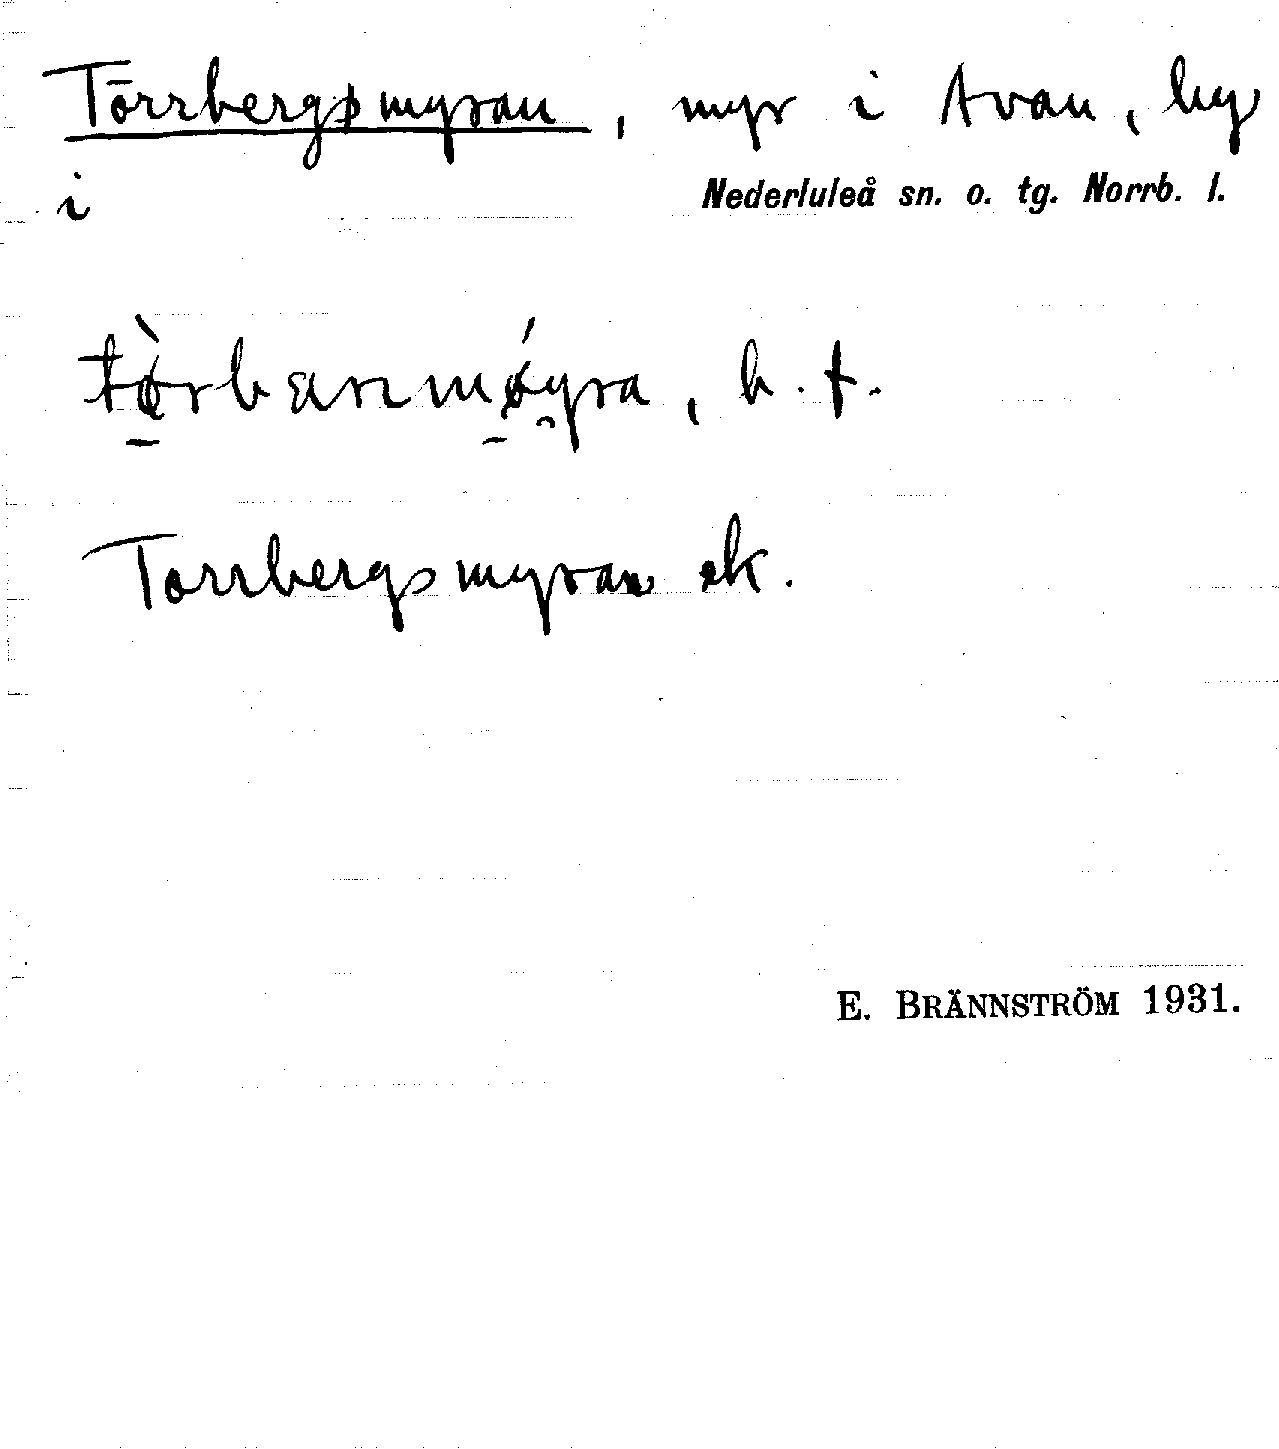 Törrbergsmyran, myr i Avan, by
i Nederluleå sn. o. tg. Norrb. l.
tö̀rbanmöýra, b. f.
Torrbergsmyran ek.
E. BRÄNNSTRÖM 1931.